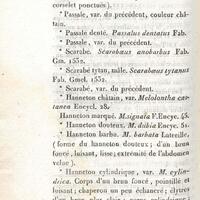 corselet ponctués).
* Passale, var. du précédent, couleur châ-
tain.
* Passale denté. Passalus dentatus Fab.
* Passale, var. du précédent.
* Scarabé. Scarabæus anobarbus Fab.
Gm. 1552.
* Scarabé tytan, mâle. Scarabæus tytanus
Fab. Gmel. 1552.
* Scarabé, var. du précédent.
* Hanneton châtain, var. Melolontha ca-
tanea Encycl. 28.
Hanneton marqué. M. signata F. Encyc. 45.
* Hanneton douteux. M. dubia Encyc. 51.
* Hanneton barbu. M. barbata Latreille.
( forme du hanneton douteux; d'un brun
foncé, luisant, lisse; extrémité de l'abdomen
velue ).
* Hanneton cylindrique, var. M. cylin-
drica. Corps d'un brun foncé, pointillé et
luisant; chaperon un peu échancré; élytres